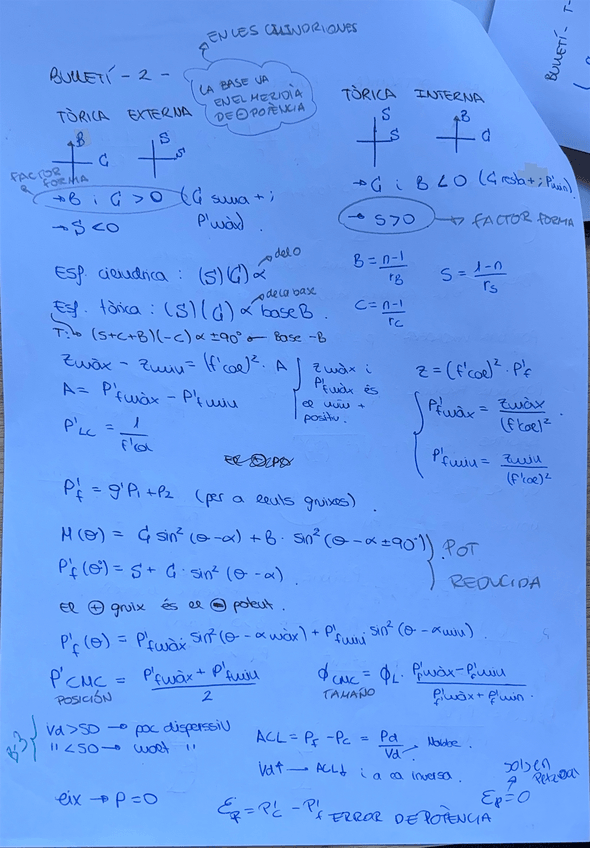 EN LES CILINDRIQUES
BULLETÍ - 2 -
LA BASE VA
EN EL MERIDIÀ
DE ⊖ POTÈNCIA
BULLETÍ - T-
TÒRICA EXTERNA
B
C
S
S
FACTOR
FORMA
→ B i C > 0 (C suma + ;
P'màx).
→ S < 0
TÒRICA INTERNA
S
S
B
C
→ C i B < 0 (C resta + ; P'min).
→ S > 0 → FACTOR FORMA
Esf. cilíndrica : (S)(C) α
del 0
Esf. tòrica : (S)(C) α base B.
de la base
T: (S+C+B)(-C) α ±90° Base -B
B = n-1 / r_B
S = 1-n / r_S
C = n-1 / r_C
Zmàx - Zmin = (f'col)² · A
A = P'fmàx - P'fmin
P'LC = 1 / f'col
Zmàx i
P'fmàx és
el +
positiu.
Z = (f'col)² · P'f
P'fmàx = Zmàx / (f'col)².
P'fmin = Zmin / (f'col)²
P'f = g'P1 + P2 (per a lents gruixes).
M(θ) = C sin²(θ-α) + B · sin²(θ-α±90°)
P'f(θ) = S + C · sin²(θ-α).
POT
REDUCIDA
el ⊕ gruix és el ⊖ potent.
P'f(θ) = P'fmàx sin²(θ-αmàx) + P'fmin sin²(θ-αmin).
P'CMC = P'fmàx + P'fmin / 2
POSICIÓN
ϕCMC = ϕL · P'fmàx - P'fmin / P'fmàx + P'fmin.
TAMAÑO
Vd > 50 → poc dispersiu
" < 50 → molt "
ACL = PF - PC = Pd / Vd
Vd↑ → ACL↓ i a la inversa.
eix → P=0
ER = P'C - P'f ERROR DE POTÈNCIA
ER = 0